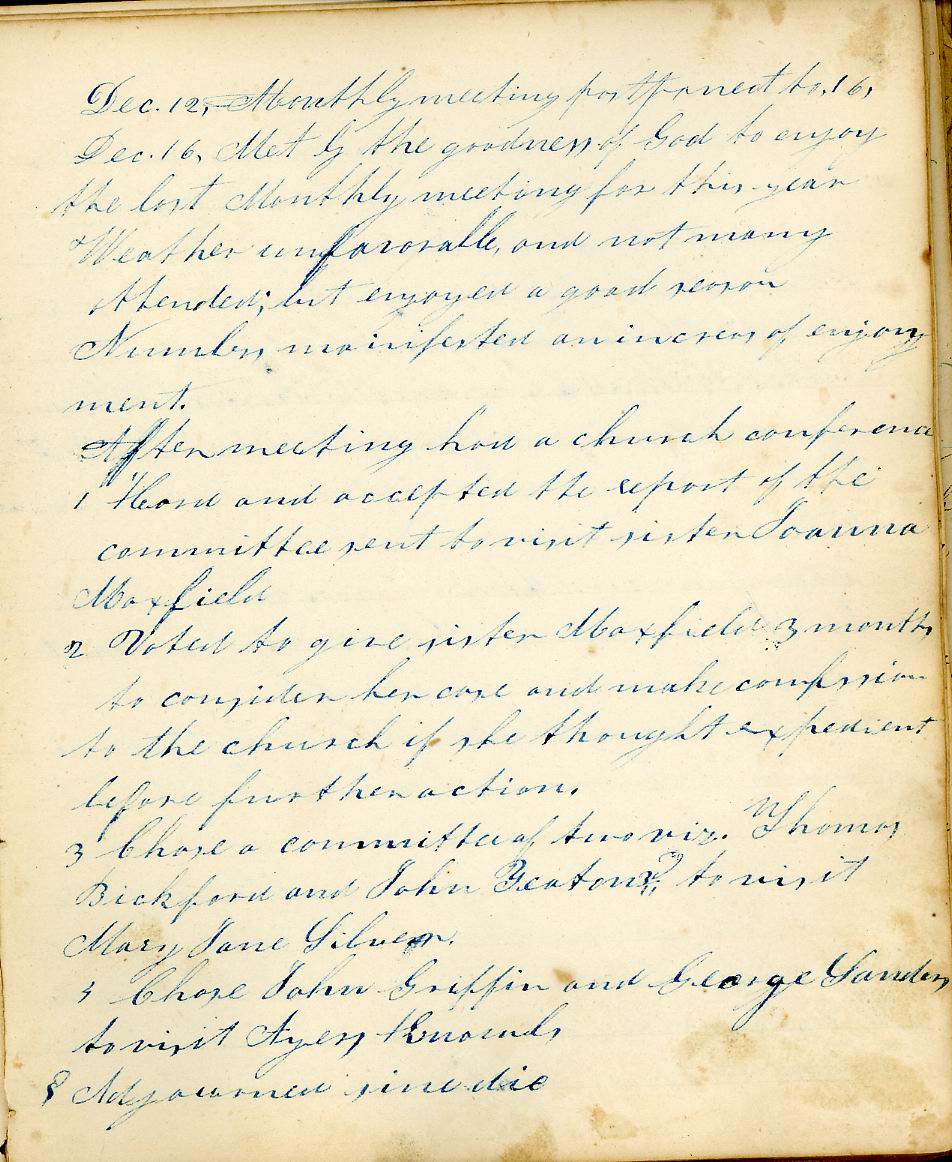 Dec. 12, Monthly meeting postponed to, 16,
Dec. 16, Met by the goodness of God to enjoy
the last Monthly meeting for this year
Weather unfavorable, and not many
attended; but enjoyed a good season
Numbers mainifested an increas of enjoy
ment.
After meeting had a church conferenc
1 Heard and accepted the report of the
committee sent to visit sister Joanna
Maxfield
2 Voted to give sister Maxfield 3 months
to consider her case and make confession
to the church if she thought expedient
before further action.
3 Chose a committee of two viz. Thomas
Bickford and John to visit
Mary Jane Silver.
4 Chose John Griffin and George Sanders
to visit Ayers
Adjourned sine die